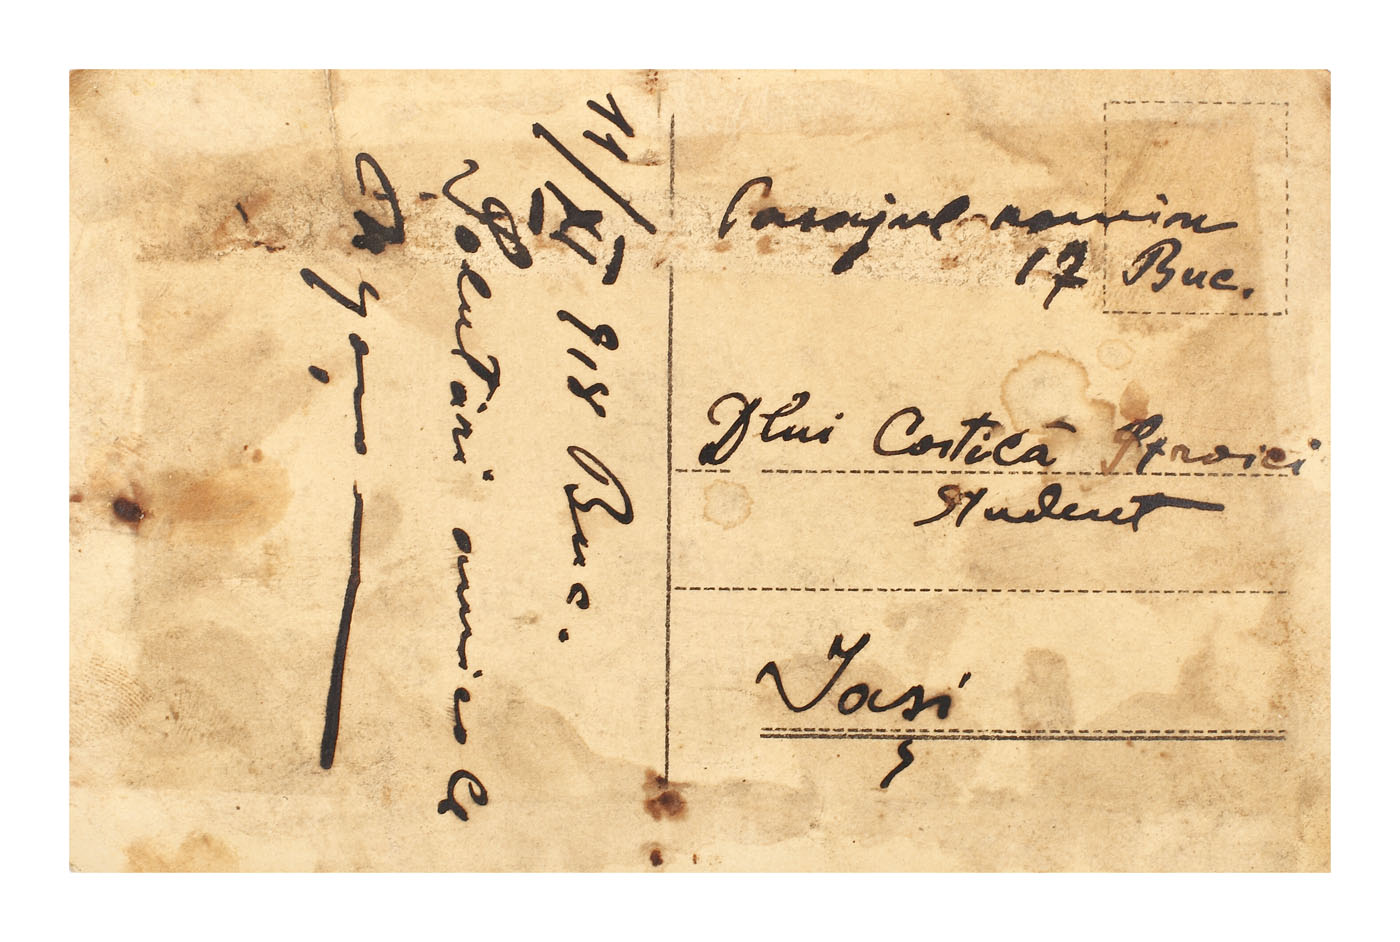 11/XI 918 Buc.
Salutări amicale
Pasajul român
17 Buc.
Dlui Costică Stroici
Student
Iași